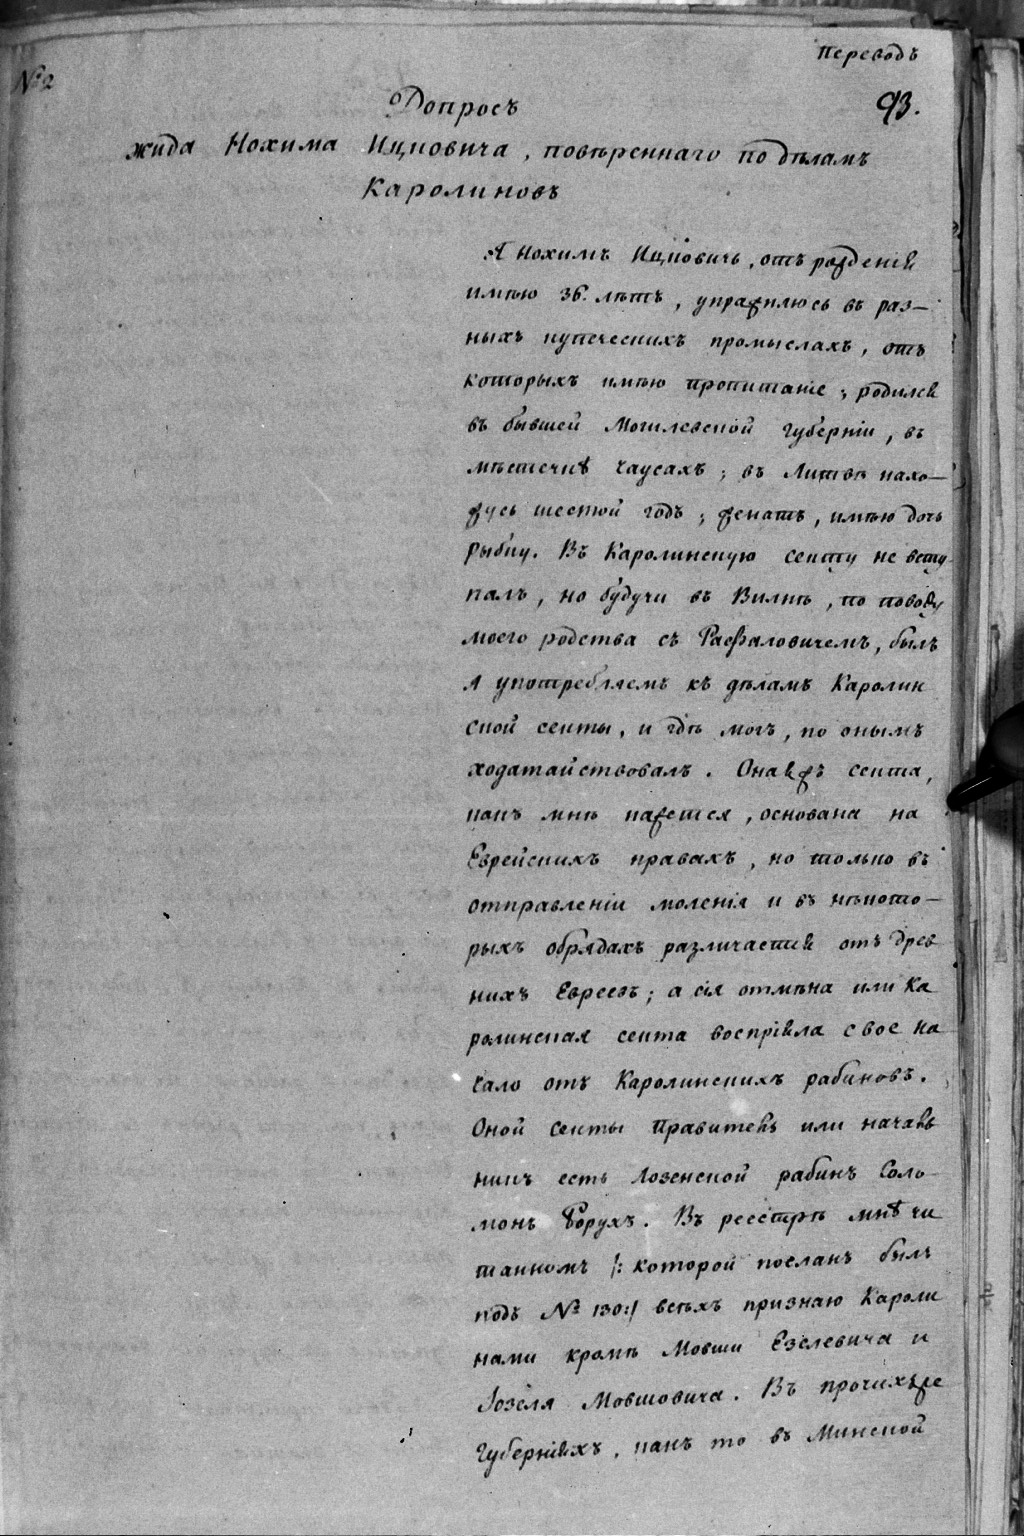 переводъ
№ 2
93.
Допросъ
жида Нохима Ицковича, повѣреннаго по дѣламъ
Каролиновъ
Я Нохимъ Ицковичь, отъ рожденія
имѣю 36. лѣтъ, упражняюсь въ раз-
ныхъ купеческихъ промыслахъ, отъ
которыхъ имѣю пропитаніе; родился
въ бывшей Могилевской губерніи, въ
мѣстечкѣ Чаусахъ; въ Литвѣ нахо-
жусь шестой годъ; женатъ, имѣю дочь
Рыбку. Въ Каролинскую секту не всту
палъ, но будучи въ Вилнѣ, по поводу
моего родства съ Рафаловичемъ, былъ
я употребляемъ къ дѣламъ Каролин
ской секты, и гдѣ могъ, по онымъ
ходатайствовалъ. Онаяжъ секта,
какъ мнѣ кажется, основана на
Еврейскихъ правахъ, но только въ
отправленіи моленія и въ нѣкото-
рыхъ обрядахъ различается отъ древ
нихъ Евреевъ; а сія отмѣна или Ка
ролинская секта воспріяла свое на
чало отъ Каролинскихъ рабиновъ.
Оной секты правитель или началь
никъ есть Лозенской рабинъ Соло-
монъ Борухъ. Въ реестрѣ мнѣ чи
танномъ /: которой посланъ былъ
подъ № 130:/ всѣхъ признаю Кароли
нами кромѣ Мовши Езелевича и
Іозеля Мовшовича. Въ прочихъже
губерніяхъ, какъ то въ Минской